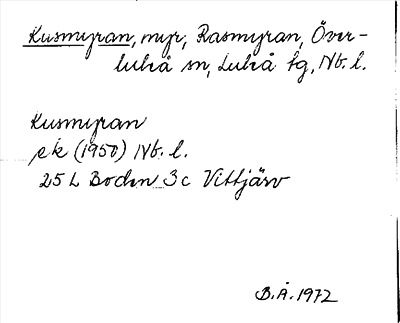 Kusmyran, myr, Rasmyran, Över-
luleå sn, Luleå tg, Nb. l.
Kusmyran
ek (1950) Nb. l.
25 L Boden 3 c Vittjärv
B.Å. 1972